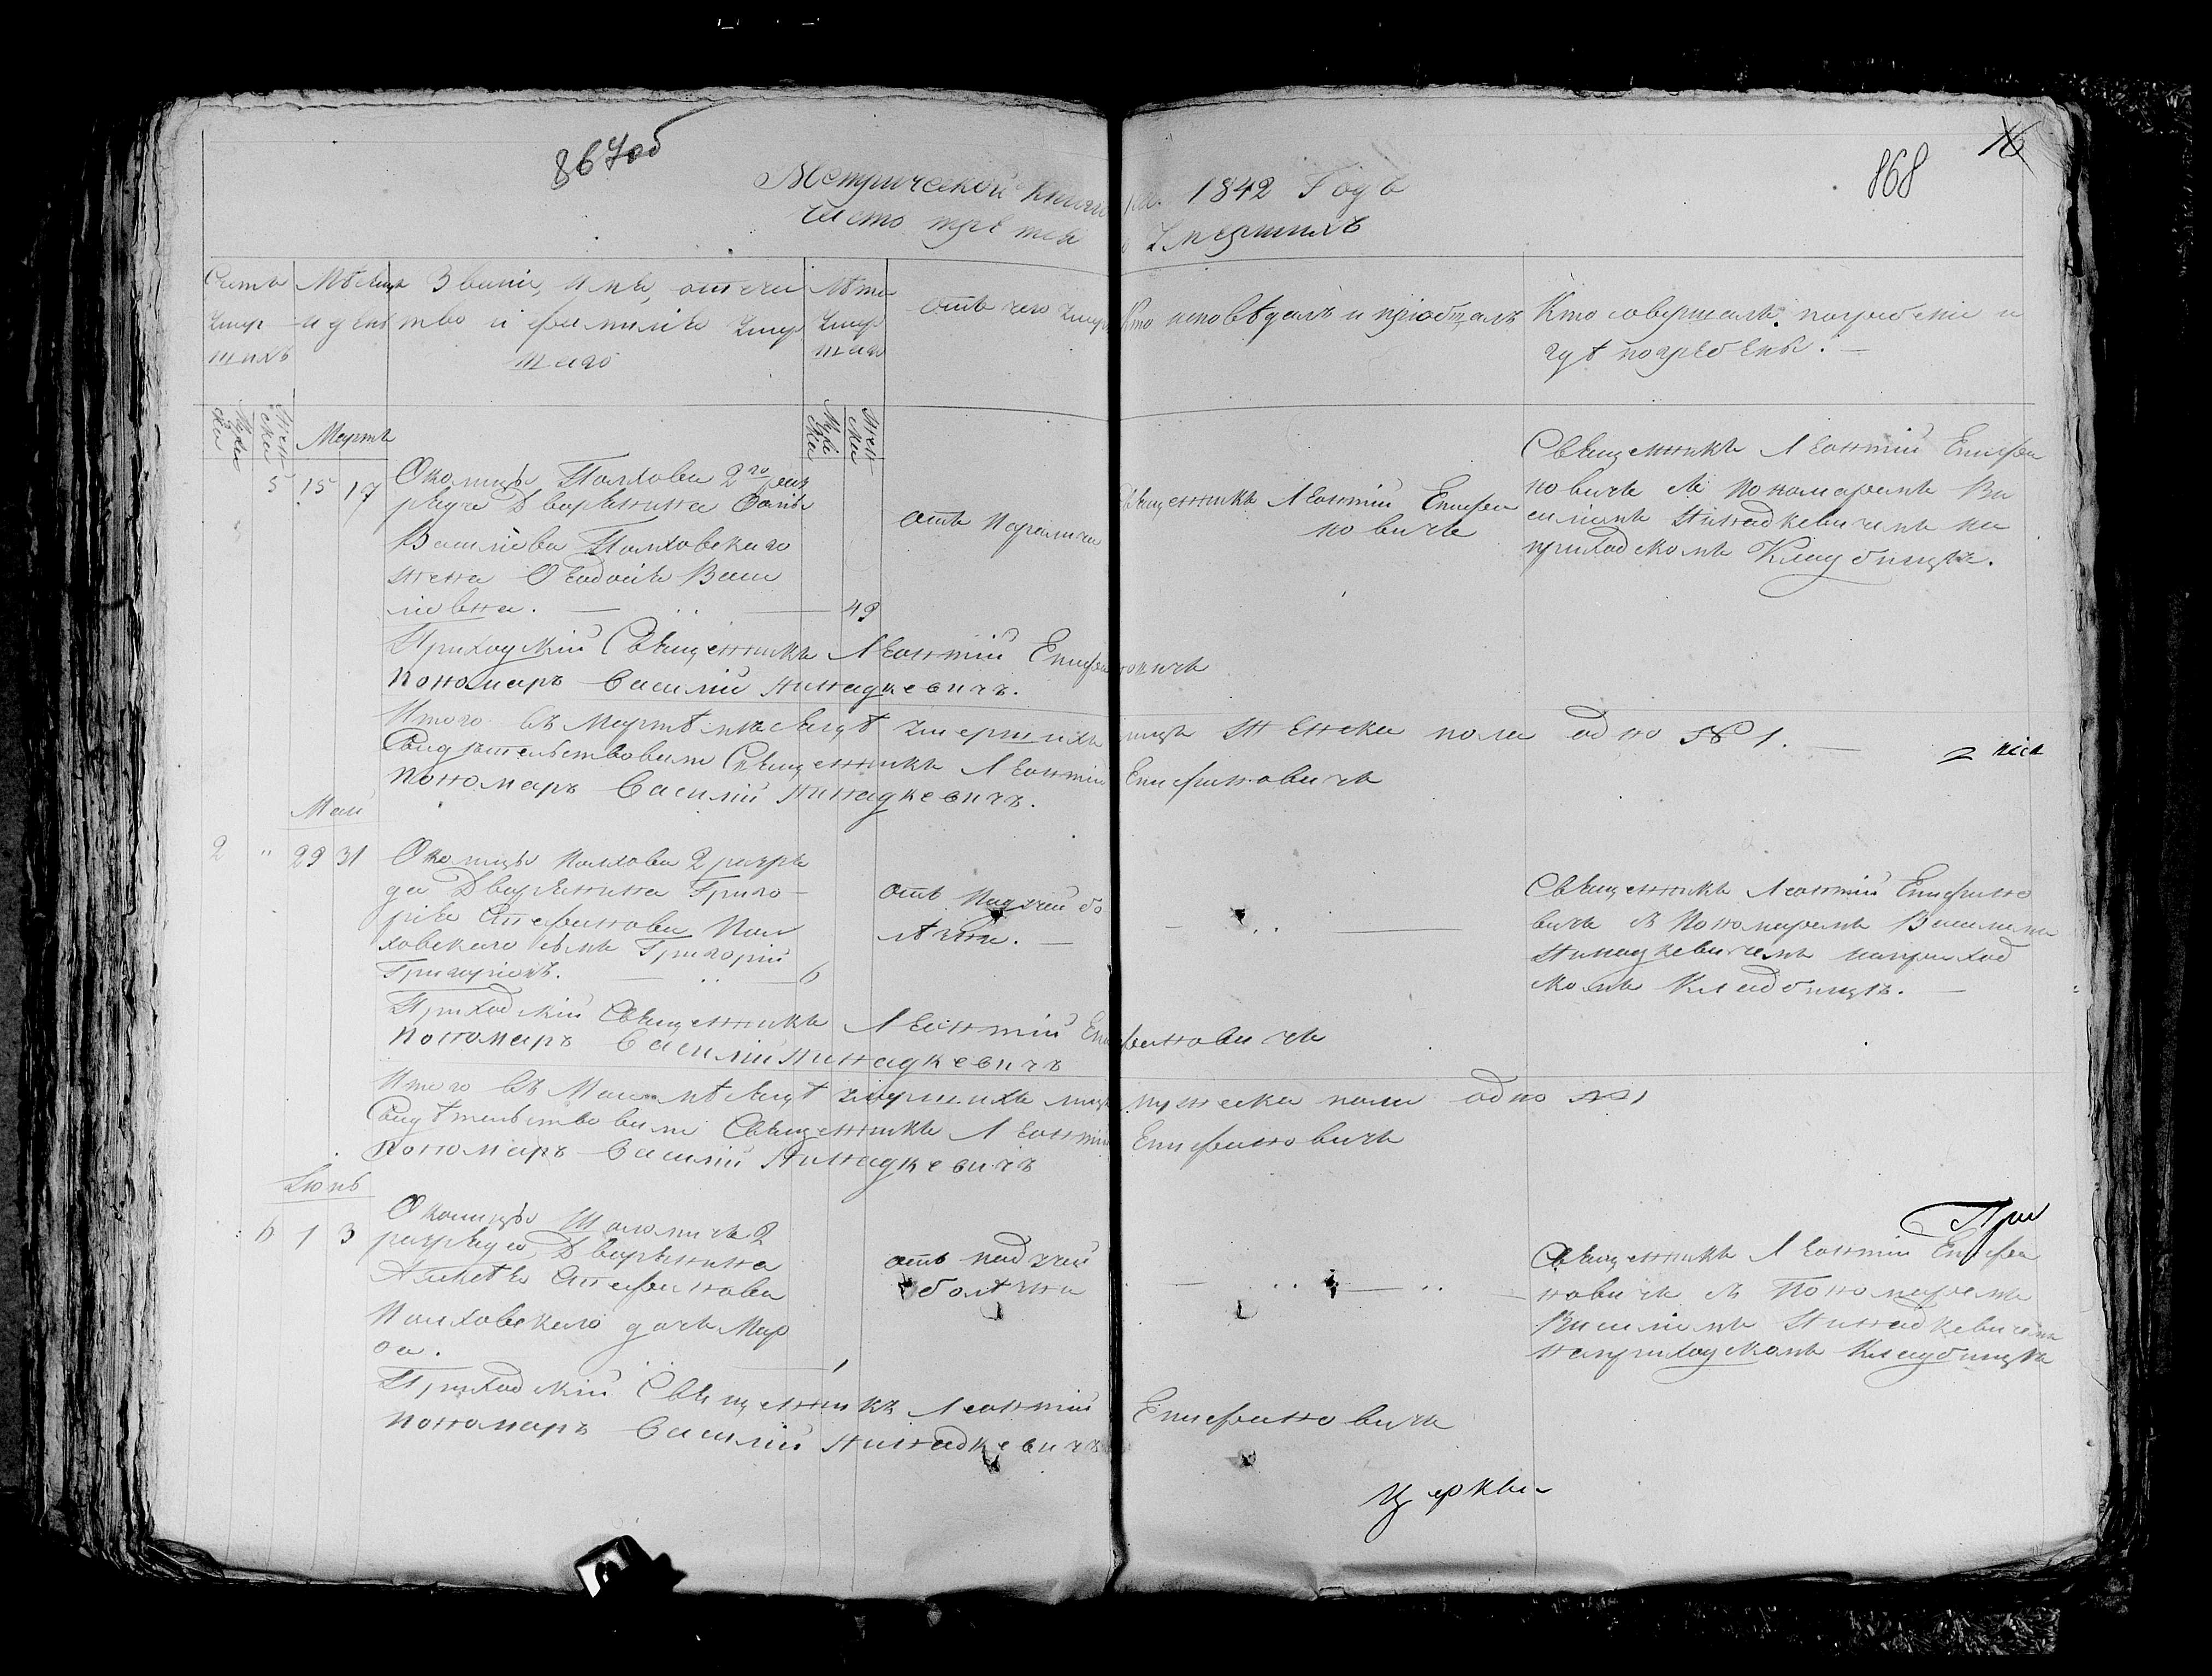 867об
868
16
Метрической книги на 1842 Годъ
часть третья о Умершихъ
Счетъ умершихъ
Мѣсяцъ и день
Званіе, имя, отечество и фамилія умершаго
Лѣта умершаго
Отъ чего умеръ
Кто исповѣдалъ и пріобщалъ
Кто совершалъ погребеніе и
гдѣ погребены.
Мужеска
Женска
Мартъ
Мужеска
Женска
5 15 17
Околицы Полхова 2го раз
ряда Дворянина
Василіева Полховскаго
жена Ѳеодосія Васи
ліевна. 49
отъ Паралича
Священникъ Леонтій Епифа
новичъ
Священникъ Леонтій Епифа
новичъ съ пономаремъ Ва
силіемъ Жинадкевичемъ на
приходскомъ Кладбищѣ.
Приходскій Священникъ Леонтій Епифановичъ
Пономарь Василій Жинадкевичъ.
Итого въ Мартѣ мѣсяцѣ умершихъ лицъ Женска пола одно № 1.
Свидѣтельствовали Священникъ Леонтій Епифановичъ
Пономарь Василій Жинадкевичъ.
Май
2 " 29 31
Околицы Полхова 2 разря
да Дворянина Григо
рія Стефанова Пол
ховскаго сынъ Григорій
Григоріевъ. 6
отъ Падучей бо
лѣзни.
Священникъ Леонтій Епифано
вичъ съ Пономаремъ Василіемъ
Жинадкевичемъ наприход
скомъ Кладбищѣ.
Приходскій Священникъ Леонтій Епифановичъ
Пономарь Василій Жинадкевичъ
Итого въ Маи мѣсяцѣ умершихъ лицъ мужеска пола одно № 1
Свидѣтельствовали Священникъ Леонтій Епифановичъ
Пономарь Василій Жинадкевичъ
Іюнь
6 1 3
Околицы 2
разряда Дворянина
Стефанова
Полховскаго дочь Мар
ѳа. 1
отъ падучей
болѣзни
При
Священникъ Леонтій Епифа
новичъ съ Пономаремъ
Василіемъ Жинадкевичемъ
наприходскомъ Кладбищѣ
Приходскій Священникъ Леонтій Епифановичъ
Пономарь Василій Жинадкевичъ
Церкви